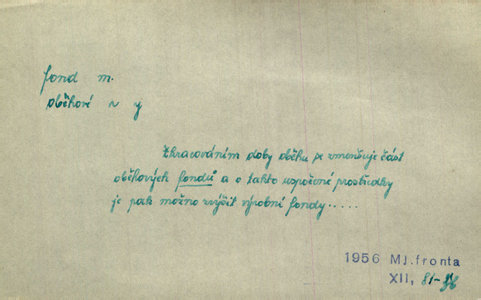 fond m.
oběhové ~ y
Zkracováním doby oběhu se zmenšuje část
oběhových fondů a o takto uspořené prostředky
je pak možno zvýšit výrobní fondy.....
1956 Ml.fronta
XII, 81-96